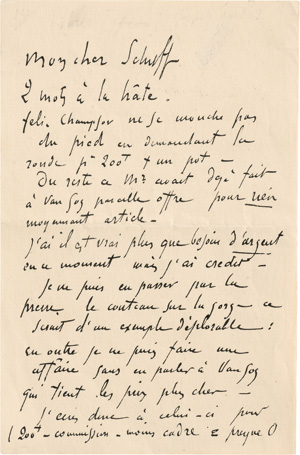 Mon cher Schuff
2 mots à la hâte.
Felix Champsor ne se mouche pas
du pied en demandant la
ronde pr 200f + un pot —
Du reste ce Mr avait déjà fait
à Van Gog pareille offre pour rien
moyennant article —
j'ai il est vrai plus que besoin d'argent
en ce moment mais j'ai credit —
Je ne puis en passer par là
prendre le couteau sur la gorge — ce
serait d'un exemple déplorable :
En outre je ne puis faire une
affaire sans en parler à Van Gog
qui tient les prix plus cher —
J'écris donc à celui-ci pour
(200f — commission — moins cadre = presque 0